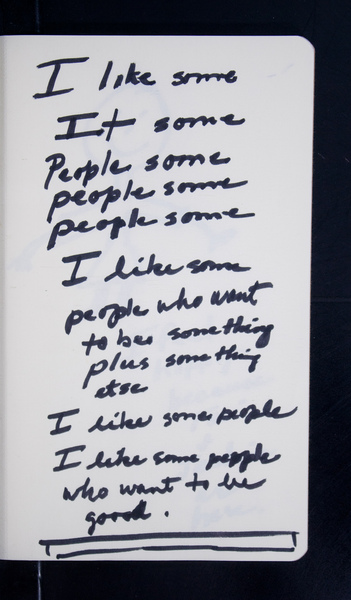 I like some
It some
People some
people some
people some
I like some
people who want
to be something
plus something
else
I like some people
I like some people
who want to be
good.